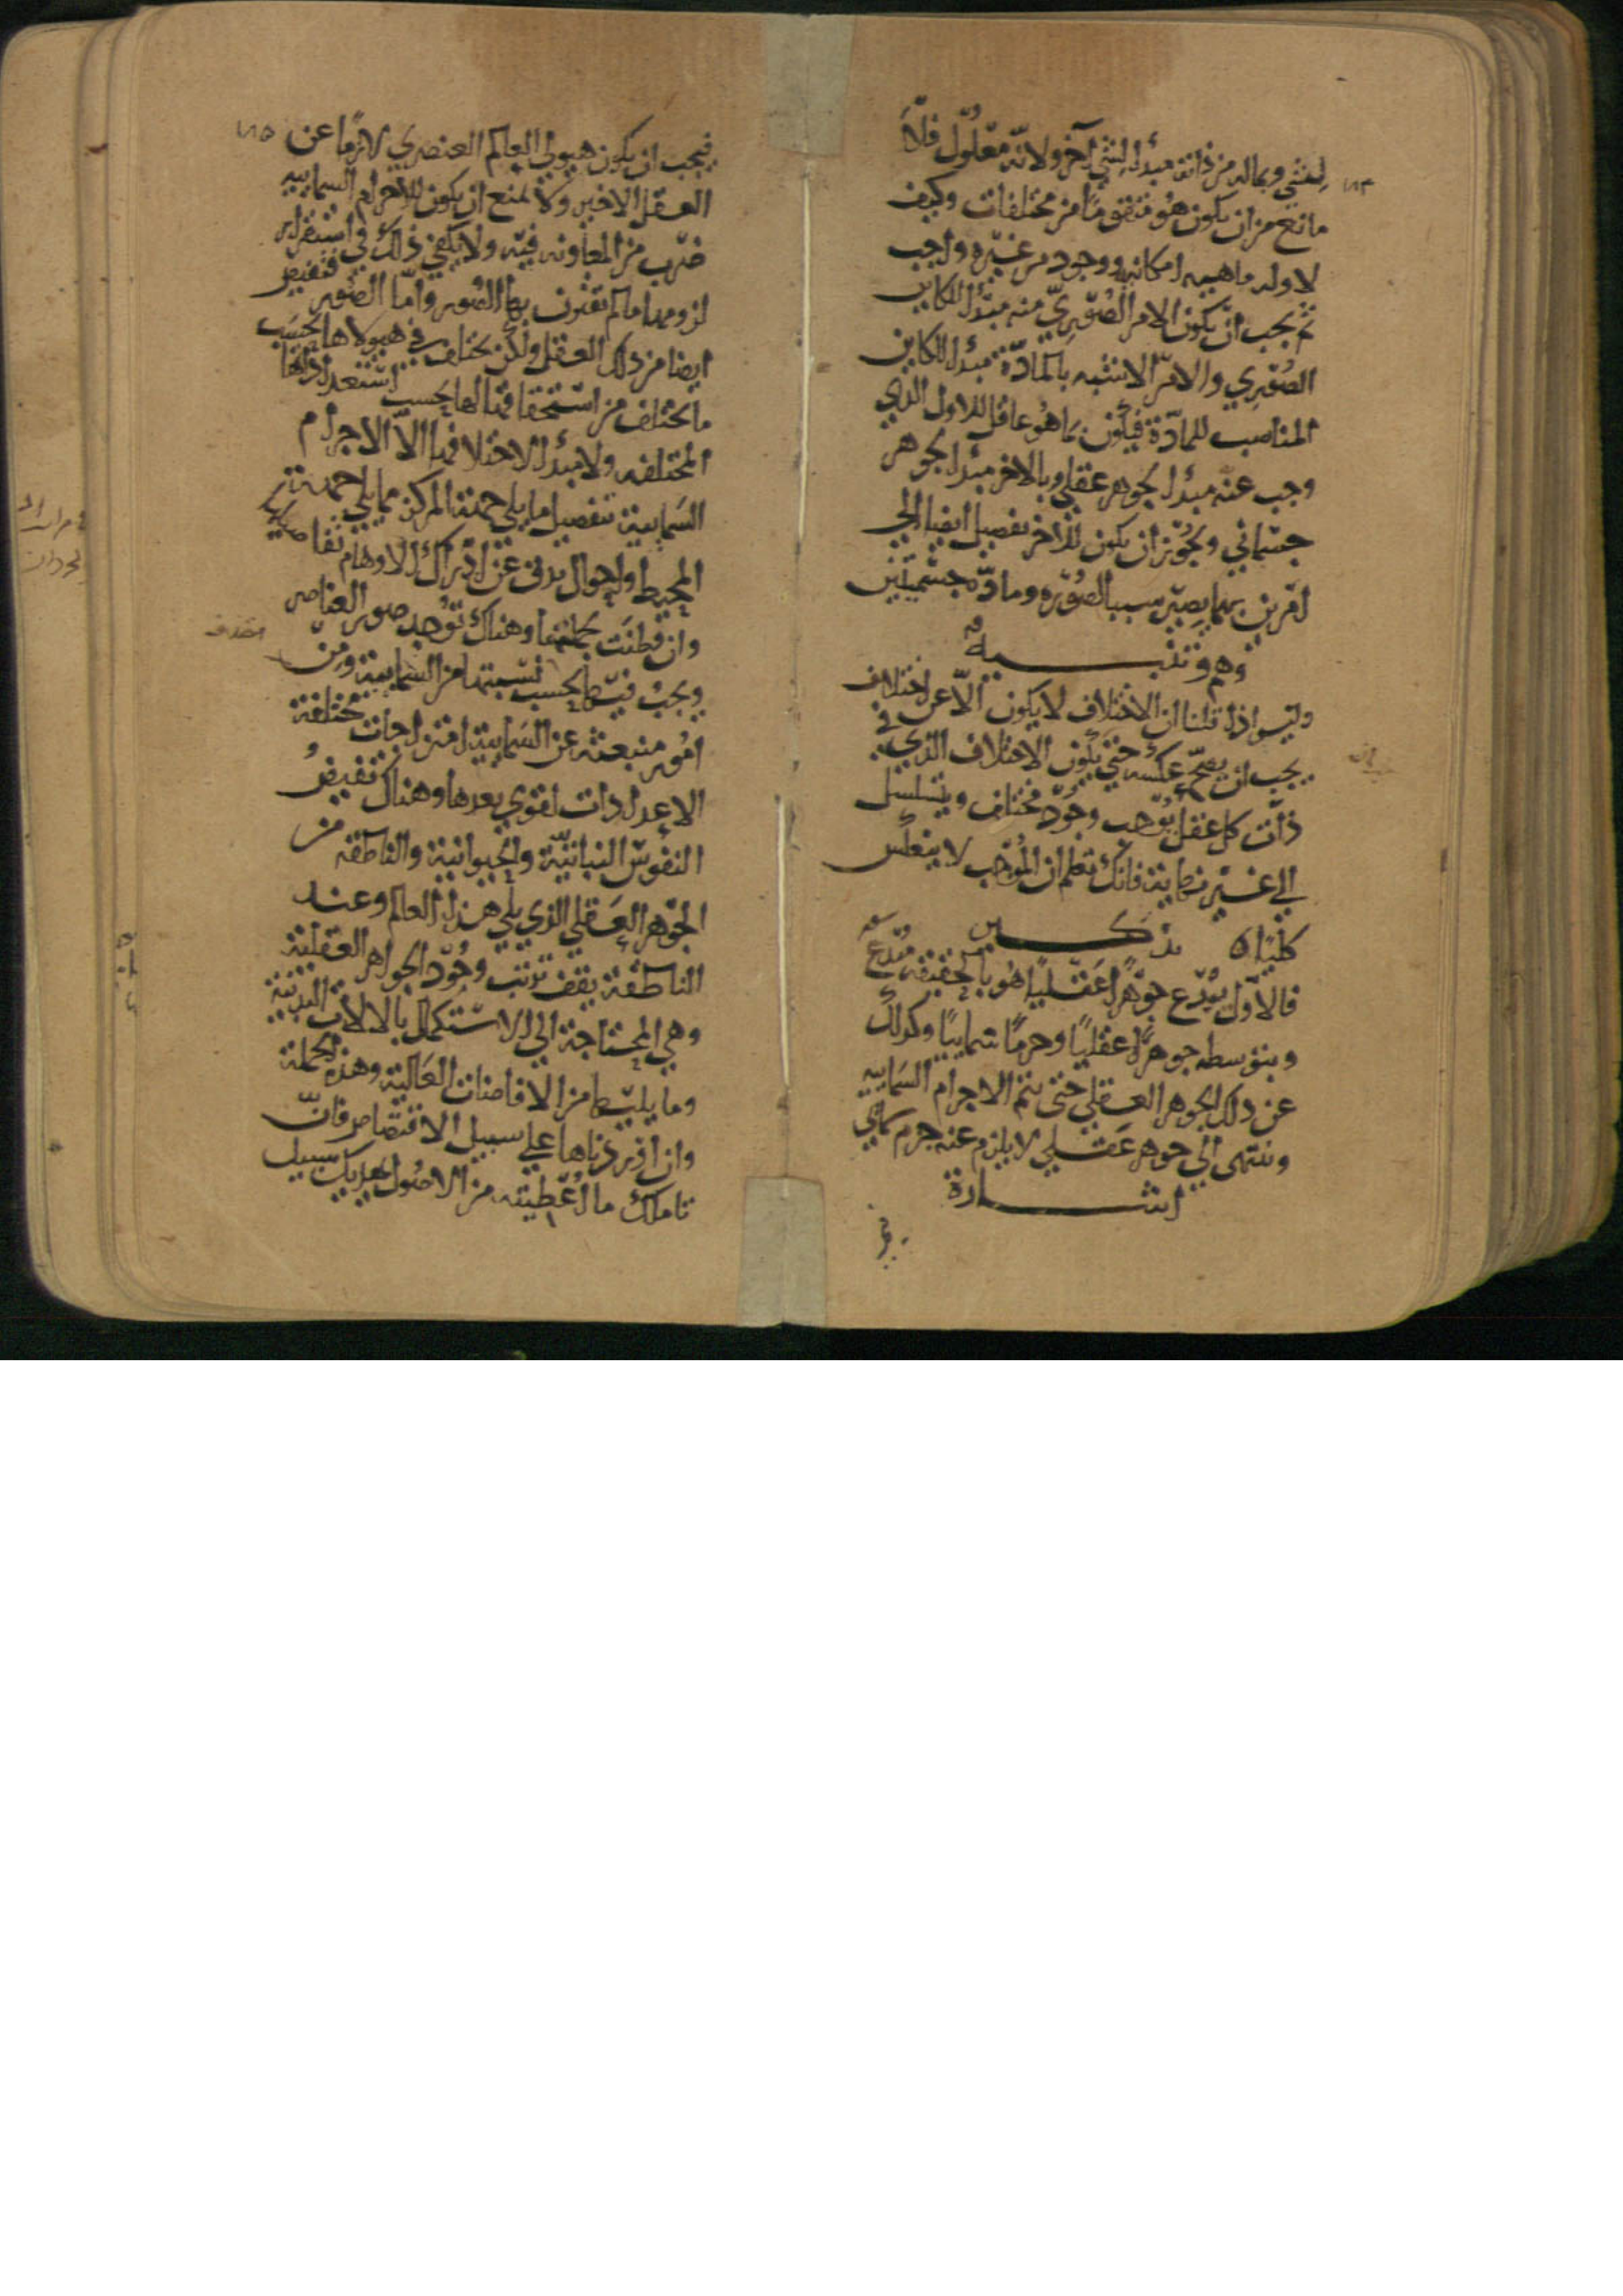 لشي وبماله من ذاته مبدأ لشي آخر ولانه معلول فلا
مانع من ان يكون هو متقوما من مختلفات وكيف
لا وله ماهيه امكانيه ووجود من غيره واجب
ثم يجب ان يكون الامر الصوري منه مبدأ للكاين
الصوري والامر الاشبه بالمادة مبدأ للكاين
المناسب للمادة فيكون بما هو عاقل للاول الذي
وجب عنه مبدأ لجوهر عقلي وبالاخر مبدأ لجوهر
جسماني ويجوز ان يكون للاخر تفصيل ايضا الي
امرين بهما يصير سببا لصورة ومادة جسميتين
وهم وتنبيه
وليس اذا قلنا ان الاختلاف لا يكون الا عن اختلاف
يجب ان يصح عكسه حتي يكون الاختلاف الذي في
ذات كل عقل يوجب وجود مختلف ويتسلسل
الي غير نهاية فانك تعلم ان الموجب لا ينعكس
كليا ه تذكير
فالاول يبدع جوهرا عقليا هو بالحقيقة مبدع
وبتوسطه جوهرا عقليا وجرما سماييا وكذلك
عن ذلك الجوهر العقلي حتى تتم الاجرام السماييه
وينتهى الي جوهر عقلي لا يلزم عنه جرم سمايي
اشارة
فيجب ان يكون هيولي العالم العنصري لازما عن
العقل الاخير ولا يمنع ان يكون للاجرام السماييه
ضرب من المعاونه فيه ولا يكفي ذلك في استقرار
لزومها ما لم تقترن بها الصور واما الصور فتفيض
ايضا من ذلك العقل ولكن يختلف في هيولاها بحسب
ما يختلف من استحقاقها لها بحسب استعداداتها
المختلفه ولا مبدأ لاختلافها الا الاجرام
السمايية بتفصيل ما يلي جهة المركز مما يلي جهة
المحيط واحوال يدق عن ادراك الاوهام تفاصيلها
وان فطنت بجملتها وهناك توجد صور العناصر
ويجب فيها بحسب نسبتها من السمايية ومن
امور منبعثه عن السمايية امتزاجات مختلفة
الاعدادات لقوي بعدها وهناك تفيض
النفوس النباتية والحيوانية والناطقه من
الجوهر العقلي الذي يلي هذا العالم وعند
الناطقة يقف ترتب وجود الجواهر العقلية
وهي المحتاجة الي الاستكمال بالالات البدنية
وما يليها من الافاضات العالية وهذه الجملة
وان اوردناها علي سبيل الاقتصاص فان
تاملك ما اعطيته من الاصول يهديك سبيل